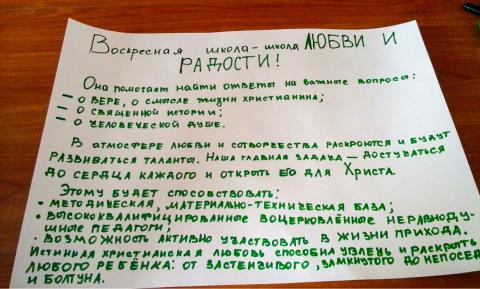 Воскресная школа - школа ЛЮБВИ И
РАДОСТИ!
Она помогает найти ответы на важные вопросы:
– о вере, о смысле жизни христианина;
– о священной истории;
– о человеческой душе.
В атмосфере любви и сотворчества раскроются и будут
развиваться таланты. Наша главная задача — достучаться
до сердца каждого и открыть его для Христа.
Этому будет способствовать:
• методическая, материально-техническая база;
• высококвалифицированные воцерковлённые неравноду-
шные педагоги;
• возможность активно участвовать в жизни прихода.
Истинная христианская любовь способна увлечь и раскрыть
любого ребёнка: от застенчивого, замкнутого до непосед
и болтуна.